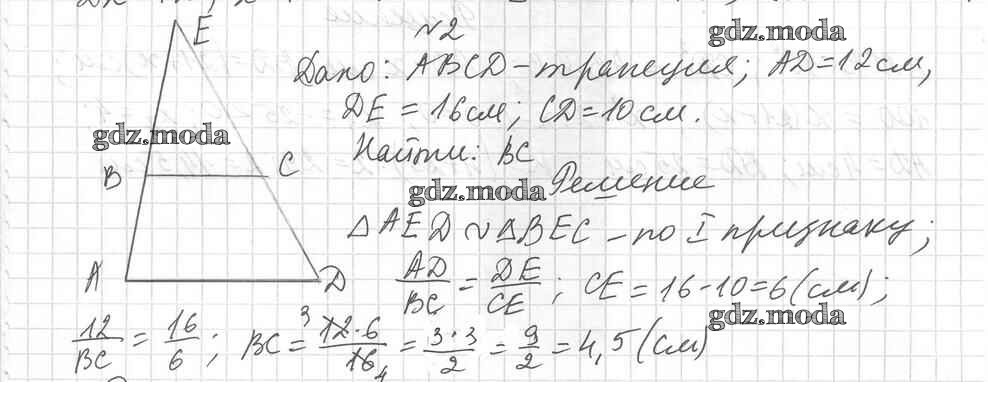 E
№2
gdz.moda
Дано: ABCD - трапеция; AD = 12 см,
DE = 16 см; CD = 10 см.
gdz.moda
Найти: BC
B C
gdz.moda Решение
△AED ∾ △BEC - по I признаку;
A D
AD/BC = DE/CE; CE = 16 - 10 = 6 (см);
gdz.moda
12/BC = 16/6; BC = 3 12·6/16 4 = 3·3/2 = 9/2 = 4,5 (см)